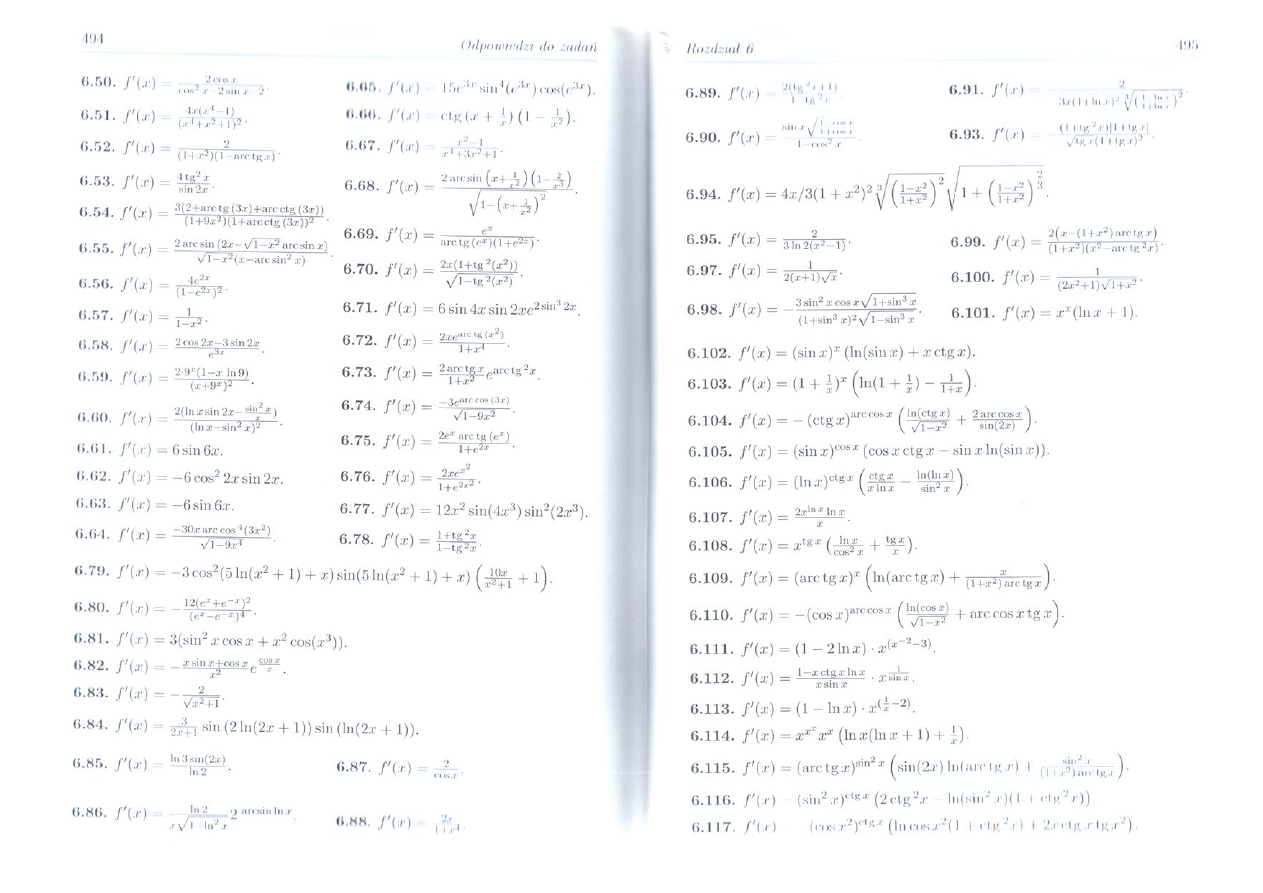 494
Odpowiedzi do zadań
6.50. f'(x) = (2 cos x)/(cos² x − 2 sin x − 2).
6.51. f'(x) = 4x(x⁴−1)/(x⁴+x²+1)².
6.52. f'(x) = 2/((1+x²)(1−arc tg x)).
6.53. f'(x) = (4 tg² x)/(sin 2x).
6.54. f'(x) = 3(2+arc tg (3x)+arc ctg (3x))/((1+9x²)(1+arc ctg (3x))²).
6.55. f'(x) = 2 arc sin (2x−√(1−x²) arc sin x)/(√(1−x²)(x−arc sin² x)
6.56. f'(x) = 4e^(2x)/(1−e^(2x))².
6.57. f'(x) = 1/(1−x²).
6.58. f'(x) = (2 cos 2x−3 sin 2x)/e^(3x).
6.59. f'(x) = 2·9^x(1−x ln 9)/(x+9^x)².
6.60. f'(x) = 2(ln x sin 2x − (sin² x)/x)/(ln x−sin² x)².
6.61. f'(x) = 6 sin 6x.
6.62. f'(x) = −6 cos² 2x sin 2x.
6.63. f'(x) = −6 sin 6x.
6.64. f'(x) = −30x arc cos ⁴(3x²)/√(1−9x⁴).
6.65. f'(x) = 15e^(3x) sin⁴(e^(3x)) cos(e^(3x)).
6.66. f'(x) = ctg (x + 1/x)(1 − 1/x²).
6.67. f'(x) = (x²−1)/(x⁴+3x²+1).
6.68. f'(x) = 2 arc sin (x+1/x²)(1−2/x³)/√(1−(x+1/x²)²).
6.69. f'(x) = e^x/(arc tg (e^x)(1+e^(2x))).
6.70. f'(x) = 2x(1+tg ²(x²))/√(1−tg ²(x²)).
6.71. f'(x) = 6 sin 4x sin 2xe^(2 sin³ 2x).
6.72. f'(x) = 2xe^(arc tg (x²))/(1+x⁴).
6.73. f'(x) = (2 arc tg x)/(1+x²) e^(arc tg ²x).
6.74. f'(x) = −3e^(arc cos (3x))/√(1−9x²).
6.75. f'(x) = 2e^x arc tg (e^x)/(1+e^(2x)).
6.76. f'(x) = 2xe^(x²)/(1+e^(2x²)).
6.77. f'(x) = 12x² sin(4x³) sin²(2x³).
6.78. f'(x) = (1+tg ²x)/(1−tg ²x).
6.79. f'(x) = −3 cos²(5 ln(x² + 1) + x) sin(5 ln(x² + 1) + x) (10x/(x²+1) + 1).
6.80. f'(x) = −12(e^x+e^(−x))²/(e^x−e^(−x))⁴.
6.81. f'(x) = 3(sin² x cos x + x² cos(x³)).
6.82. f'(x) = −(x sin x+cos x)/x² e^((cos x)/x).
6.83. f'(x) = −2/√(x²+1).
6.84. f'(x) = 3/(2x+1) sin (2 ln(2x + 1)) sin (ln(2x + 1)).
6.85. f'(x) = (ln 3 sin(2x))/(ln 2).
6.87. f'(x) = 2/(cos x).
6.86. f'(x) = (ln 2)/(x√(1−ln² x)) 2^(arcsin ln x).
6.88. f'(x) = 2x/(1+x⁴).
Rozdział 6
495
6.89. f'(x) = 2(tg ²x+1)/(1−tg ²x).
6.90. f'(x) = sin x√((1−cos x)/(1+cos x))/(1−cos² x).
6.91. f'(x) = −2/(3x(1+ln x)² ∛((1−ln x)/(1+ln x))²).
6.93. f'(x) = (1+tg ²x)|1+tg x|/(√(tg x)(1+tg x)²).
6.94. f'(x) = 4x/3(1 + x²)² ∛(((1−x²)/(1+x²))²) √(1 + ((1−x²)/(1+x²))^(2/3)).
6.95. f'(x) = 2/(3 ln 2(x²−1)).
6.97. f'(x) = 1/(2(x+1)√x).
6.98. f'(x) = −3 sin² x cos x√(1+sin³ x)/((1+sin³ x)²√(1−sin³ x)).
6.99. f'(x) = 2(x−(1+x²) arc tg x)/((1+x²)(x²−arc tg ²x)).
6.100. f'(x) = 1/((2x²+1)√(1+x²)).
6.101. f'(x) = x^x(ln x + 1).
6.102. f'(x) = (sin x)^x (ln(sin x) + x ctg x).
6.103. f'(x) = (1 + 1/x)^x (ln(1 + 1/x) − 1/(1+x)).
6.104. f'(x) = − (ctg x)^(arc cos x) (ln(ctg x)/√(1−x²) + (2 arc cos x)/sin(2x)).
6.105. f'(x) = (sin x)^(cos x) (cos x ctg x − sin x ln(sin x)).
6.106. f'(x) = (ln x)^(ctg x) ((ctg x)/(x ln x) − ln(ln x)/(sin² x)).
6.107. f'(x) = 2x^(ln x) ln x/x.
6.108. f'(x) = x^(tg x) ((ln x)/(cos² x) + (tg x)/x).
6.109. f'(x) = (arc tg x)^x (ln(arc tg x) + x/((1+x²) arc tg x)).
6.110. f'(x) = −(cos x)^(arc cos x) (ln(cos x)/√(1−x²) + arc cos x tg x).
6.111. f'(x) = (1 − 2 ln x) · x^(x^(−2)−3).
6.112. f'(x) = (1−x ctg x ln x)/(x sin x) · x^(1/(sin x)).
6.113. f'(x) = (1 − ln x) · x^(1/x−2).
6.114. f'(x) = x^(x^x) x^x (ln x(ln x + 1) + 1/x).
6.115. f'(x) = (arc tg x)^(sin² x) (sin(2x) ln(arc tg x) + (sin² x)/((1+x²) arc tg x)).
6.116. f'(x) = (sin² x)^(ctg x) (2 ctg ²x − ln(sin² x)(1 + ctg ²x)).
6.117. f'(x) = −(cos x²)^(ctg x) (ln cos x²(1 + ctg ²x) + 2x ctg x tg x²).